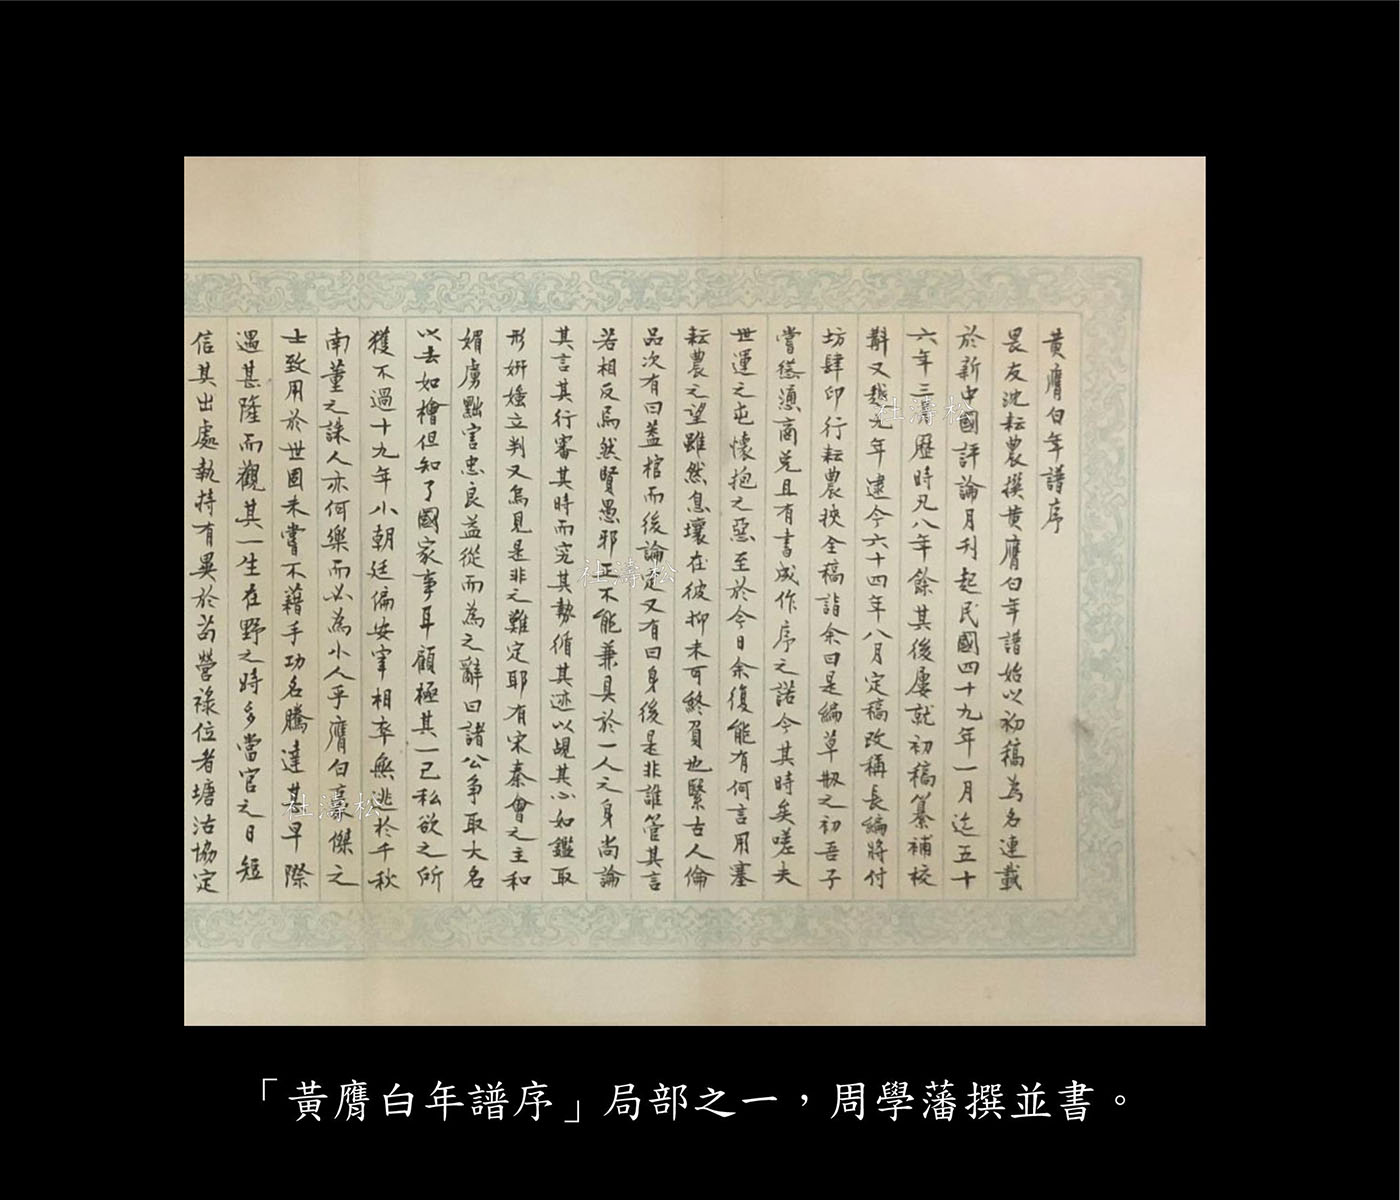 黃膺白年譜序
畏友沈耘農撰黃膺白年譜始以初稿為名連載
於新中國評論月刊起民國四十九年一月迄五十
六年三月歷時凡八年餘其後屢就初稿纂補校
斠又越九年逮今六十四年八月定稿改稱長編將付
坊肆印行耘農挾全稿詣余曰是編草剏之初吾子
嘗慫慂商兌且有書成作序之諾今其時矣嗟夫
世運之屯懷抱之惡至於今日余復能有何言用塞
耘農之望雖然息壤在彼抑未可終負也緊古人倫
品次有曰蓋棺而後論定又有曰身後是非誰管其言
若相反焉然賢愚邪正不能兼具於一人之身尚論
其言其行審其時而究其勢循其迹以覘其心如鑑取
形妍媸立判又烏見是非之難定耶有宋秦會之主和
媚虜黜害忠良益從而為之辭曰諸公爭取大名
以去如檜但知了國家事耳顧極其一己私欲之所
獲不過十九年小朝廷偏安宰相卒無逃於千秋
南董之誅人亦何樂而必為小人乎膺白豪傑之
士致用於世固未嘗不藉手功名騰達甚早際
遇甚隆而觀其一生在野之時多當官之日短
信其出處執持有異於苟營祿位者塘沽協定
杜濤松
杜濤松
杜濤松
「黃膺白年譜序」局部之一，周學藩撰並書。